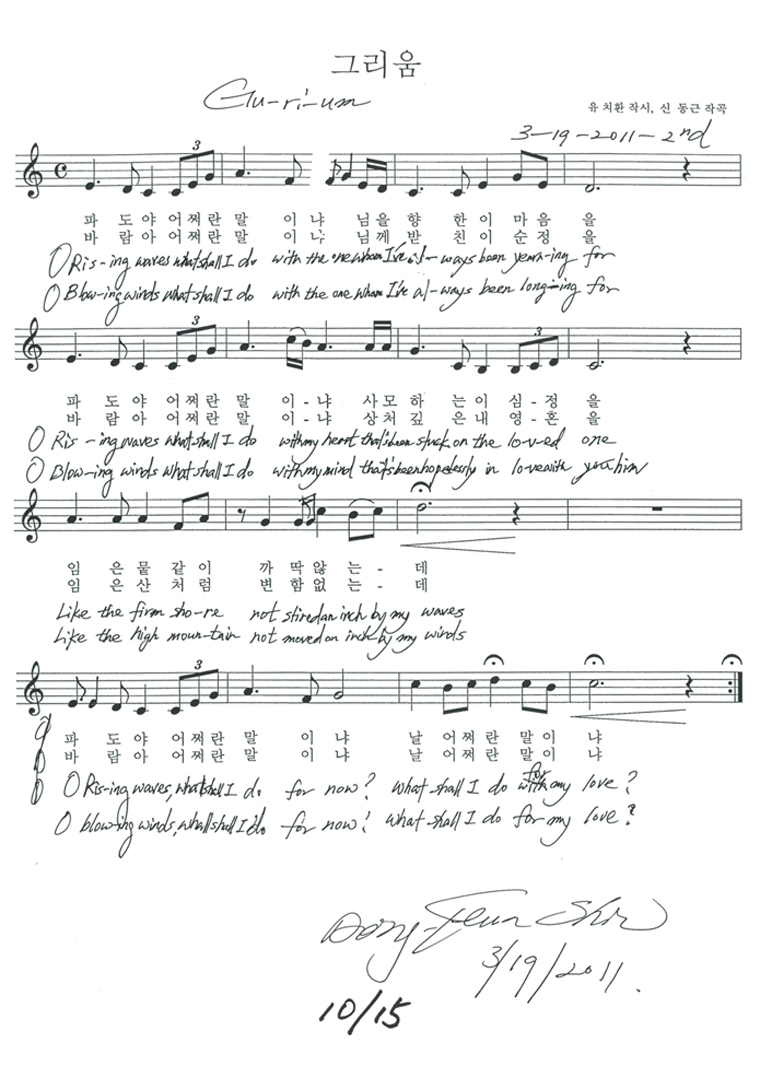 그리움
Gu-ri-um
유 치환 작시, 신 동근 작곡
3-19-2011-2nd
3
파 도 야 어 쩌 란 말 이 냐 님 을 향 한 이 마 음 을
바 람 아 어 쩌 란 말 이 냐 님 께 받 친 이 순 정 을
O Ris-ing waves what shall I do with the one whom I've al-ways been yearn-ing for
O Blow-ing winds what shall I do with the one whom I've al-ways been long-ing for
3 3
파 도 야 어 쩌 란 말 이 - 냐 사 모 하 는 이 심 - 정 을
바 람 아 어 쩌 란 말 이 - 냐 상 처 깊 은 내 영 - 혼 을
O Ris-ing waves what shall I do with my heart that's been stuck on the lo-ved one
O Blow-ing winds what shall I do with my mind that's been hopelessly in love with him
임 은 뭍 같 이 까 딱 않 는 - 데
임 은 산 처 럼 변 함 없 는 - 데
Like the firm sho-re not stired an inch by my waves
Like the high moun-tain not moved an inch by my winds
3
파 도 야 어 쩌 란 말 이 냐 날 어 쩌 란 말 이 냐
바 람 아 어 쩌 란 말 이 냐 날 어 쩌 란 말 이 냐
O Ris-ing waves, what shall I do for now? What shall I do for my love?
O blow-ing winds, what shall I do for now? What shall I do for my love?
Dong-Geun Shin
3/19/2011.
10/15